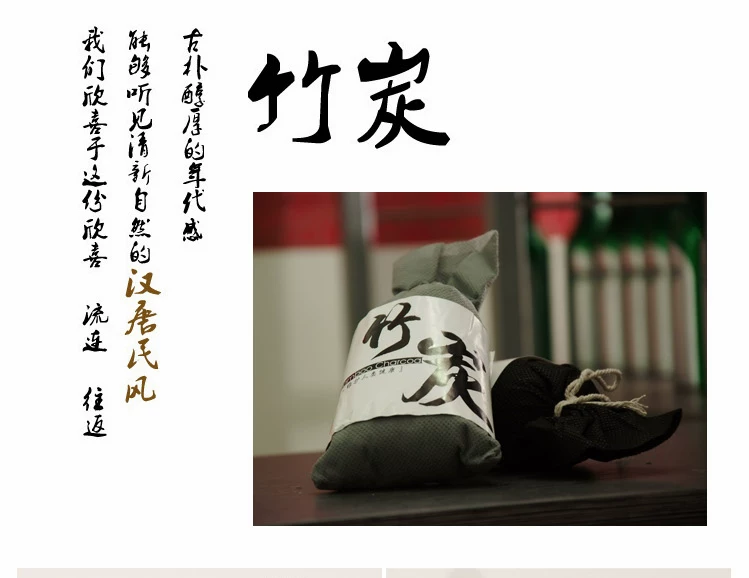 竹炭
古朴醇厚的年代感
能够听见清新自然的汉唐民风
我们欣喜于这份欣喜 流连 往返
竹
炭
Bamboo Charcoal